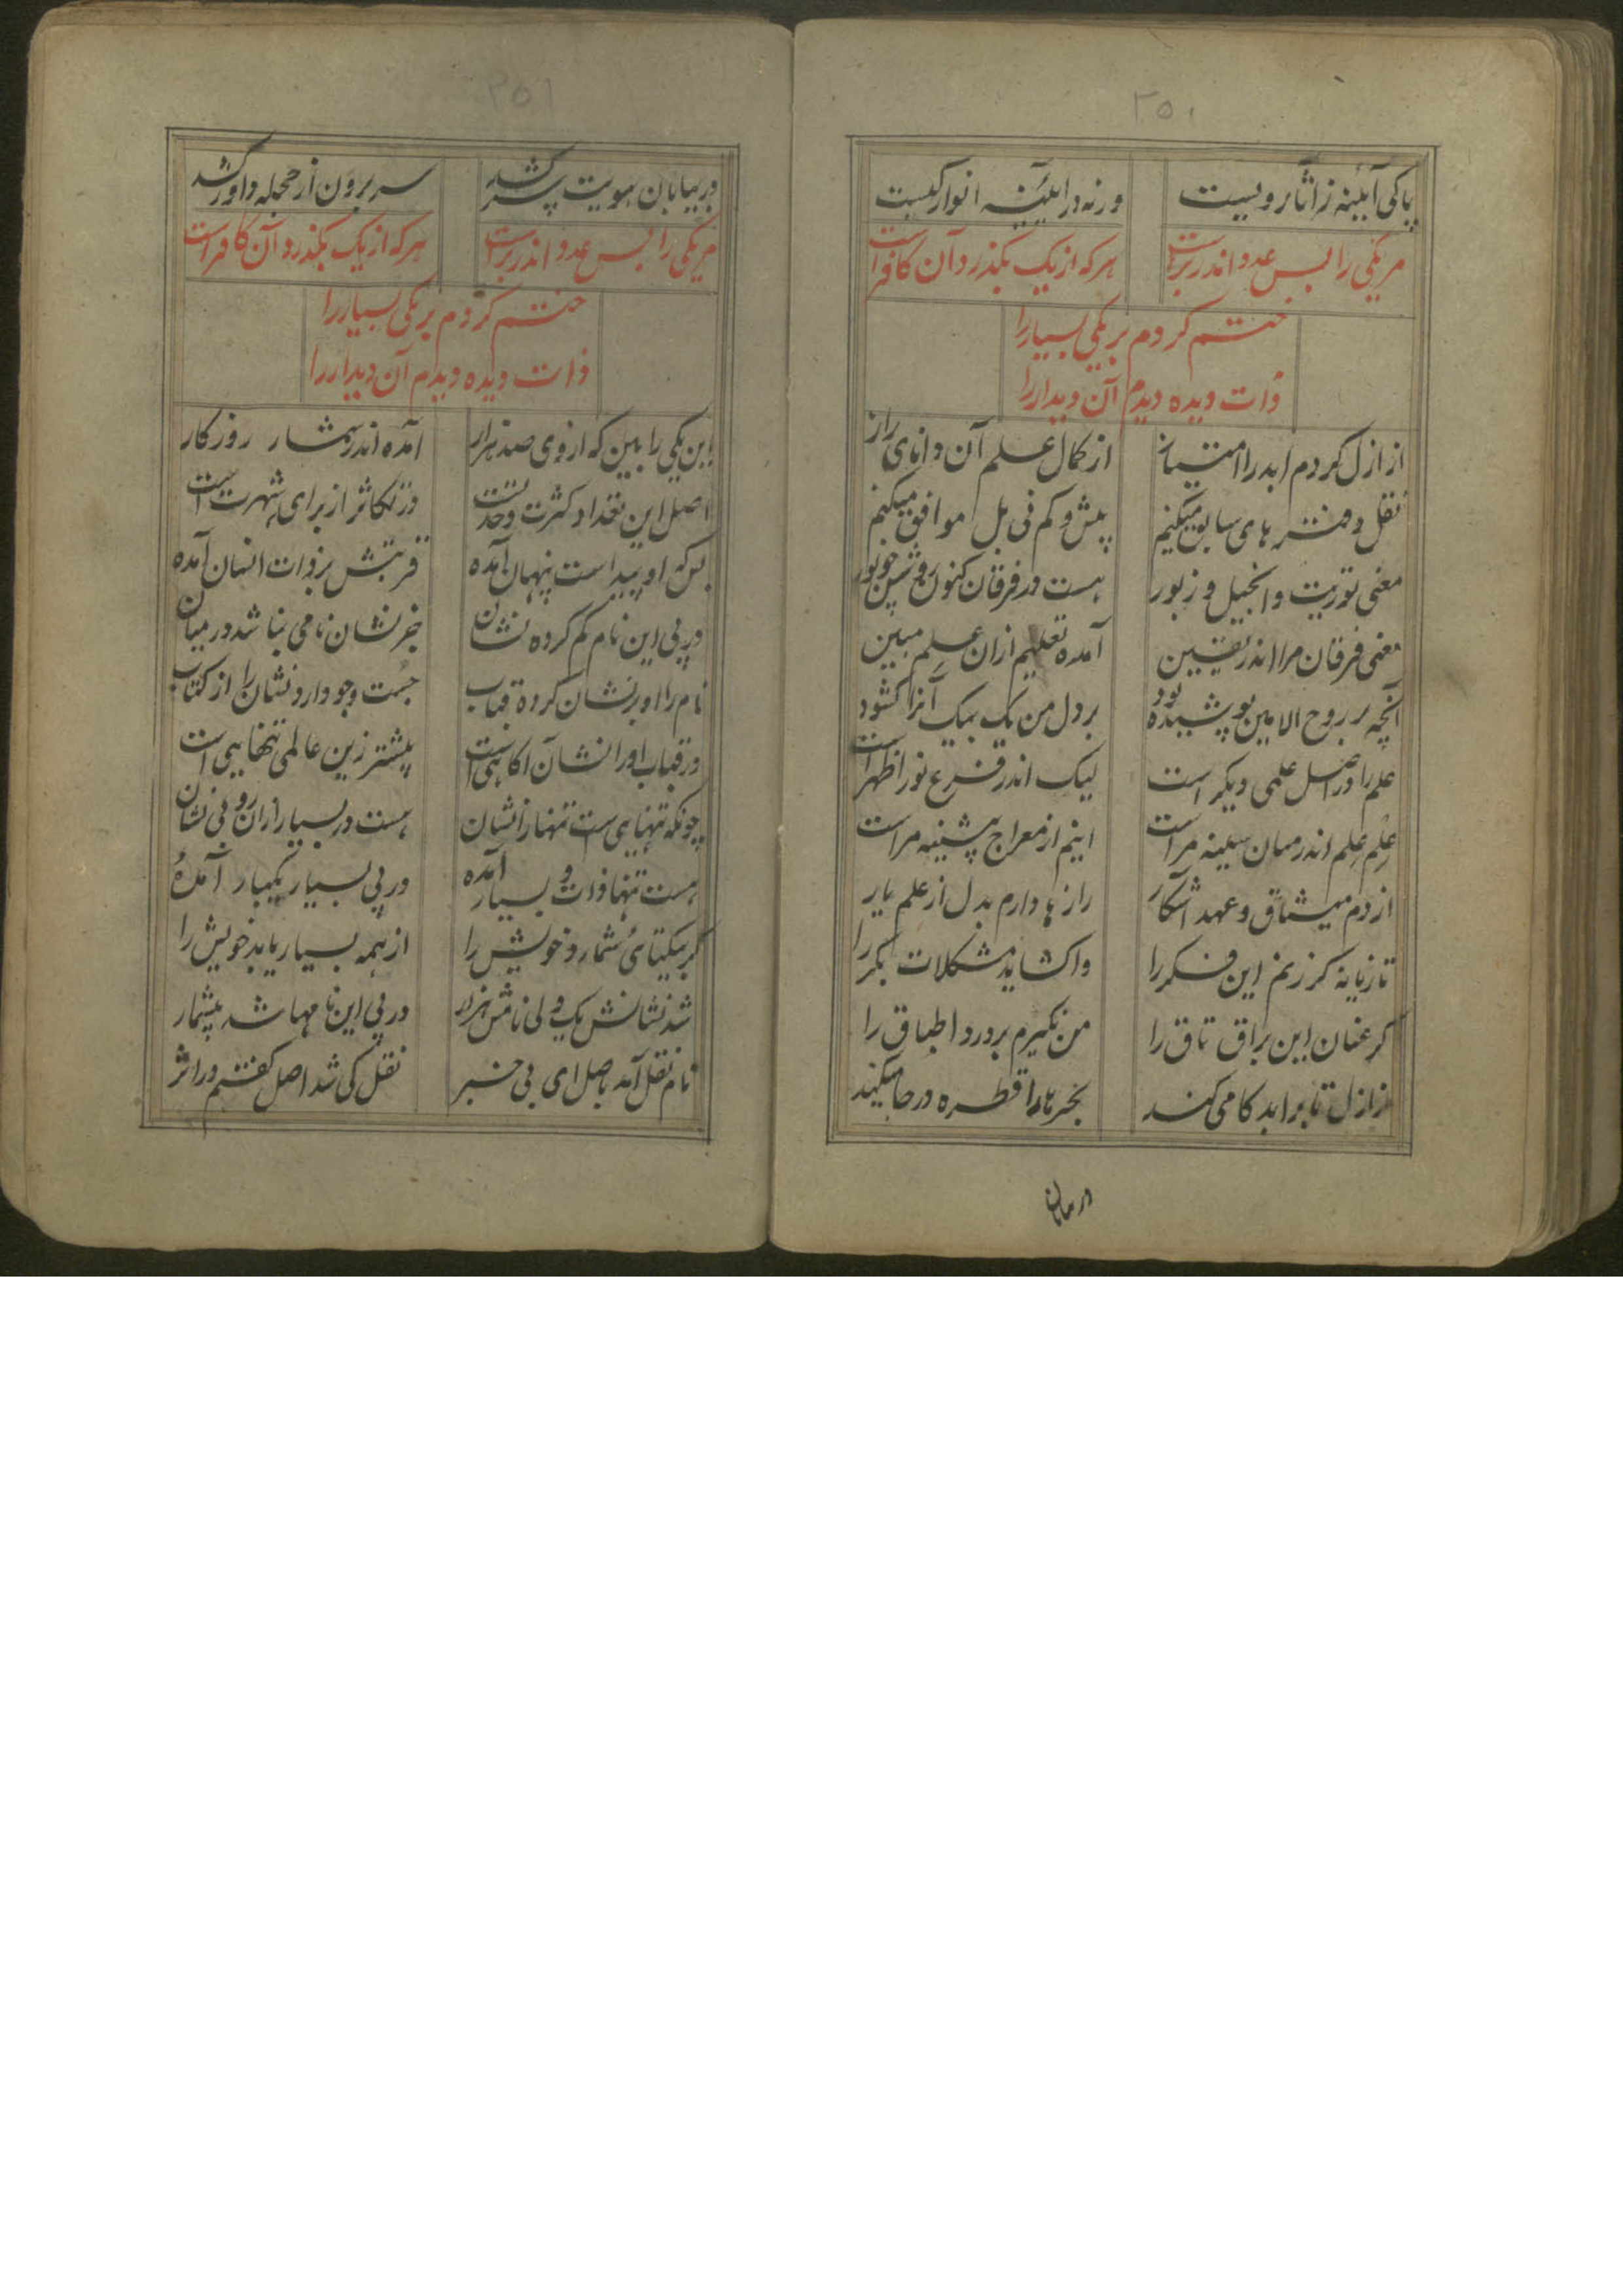 ۲۵۱
پاکی آئینه ز آثار رویست ورنه در آئینه انوار کیست
مر یکی را بس عدد اندر برست هرکه از یک بگذرد آن کافر است
ختم کردم بر یکی بسیار را
ذات دیده دیدم آن دیدار را
از ازل کردم ابد را امتیاز از کمال علم آن دانای راز
نقل دفتر های سابق میکنیم بیش و کم نی بل موافق میکنم
معنی توریت و انجیل و زبور هست در فرقان کنون روشن چو نور
معنی فرقان مرا اندر یقین آمده تعلیم ازان علم مبین
آنچه بر روح الامین پوشیده بود بر دل من یک بیک آنرا کشود
علم را در اصل علمی دیکر است لیک اندر فرع نور اظهر است
علم علم اندر میان سینه مراست اینم از معراج پیشینه مراست
از دم میثاق و عهد آشکار راز ها دارم بدل از علم یار
تازیانه کر زنم این فکر را واکشاید مشکلات بکر را
کر عنان این براق تاق را من نکیرم بردرد اطباق را
از ازل تا بر ابد کامی کند بحرها را قطره در جامی کند
در بیابان
۲۵۲
در بیابان هویت سر کشد سر برون از حجله داور کشد
مر یکی را بس عدد اندر برست هرکه از یک بگذرد آن کافر است
ختم کردم بر یکی بسیار را
ذات دیده دیدم آن دیدار را
این یکی را بین که از وی صد هزار آمده اندر شمار روزکار
اصل این تعداد کثرت وحدتست وز تکاثر از برای شهرت است
بس که او پیداست پنهان آمده قربتش بر ذات انسان آمده
در پی این نام کم کرده نشان جز نشان نامی نباشد در میان
نام را او بر نشان کرده قباب جست و جو دارد نشان را از کتاب
در قباب او را نشان آکاهی است پیشتر زین عالمی تنهایی است
چونکه تنهایی است تنها را نشان هست در بسیار ازان رو بی نشان
هست تنها ذات و بسیار آمده در پی بسیار یکبار آمده
کر بیکتائی شمارد خویش را از همه بسیار یابد خویش را
شد نشانش یک ولی نامش هزار در پی این نامها شد بیشمار
نام نقل آمد باصل ای بی خبر نقل کی شد اصل کفتم در اثر